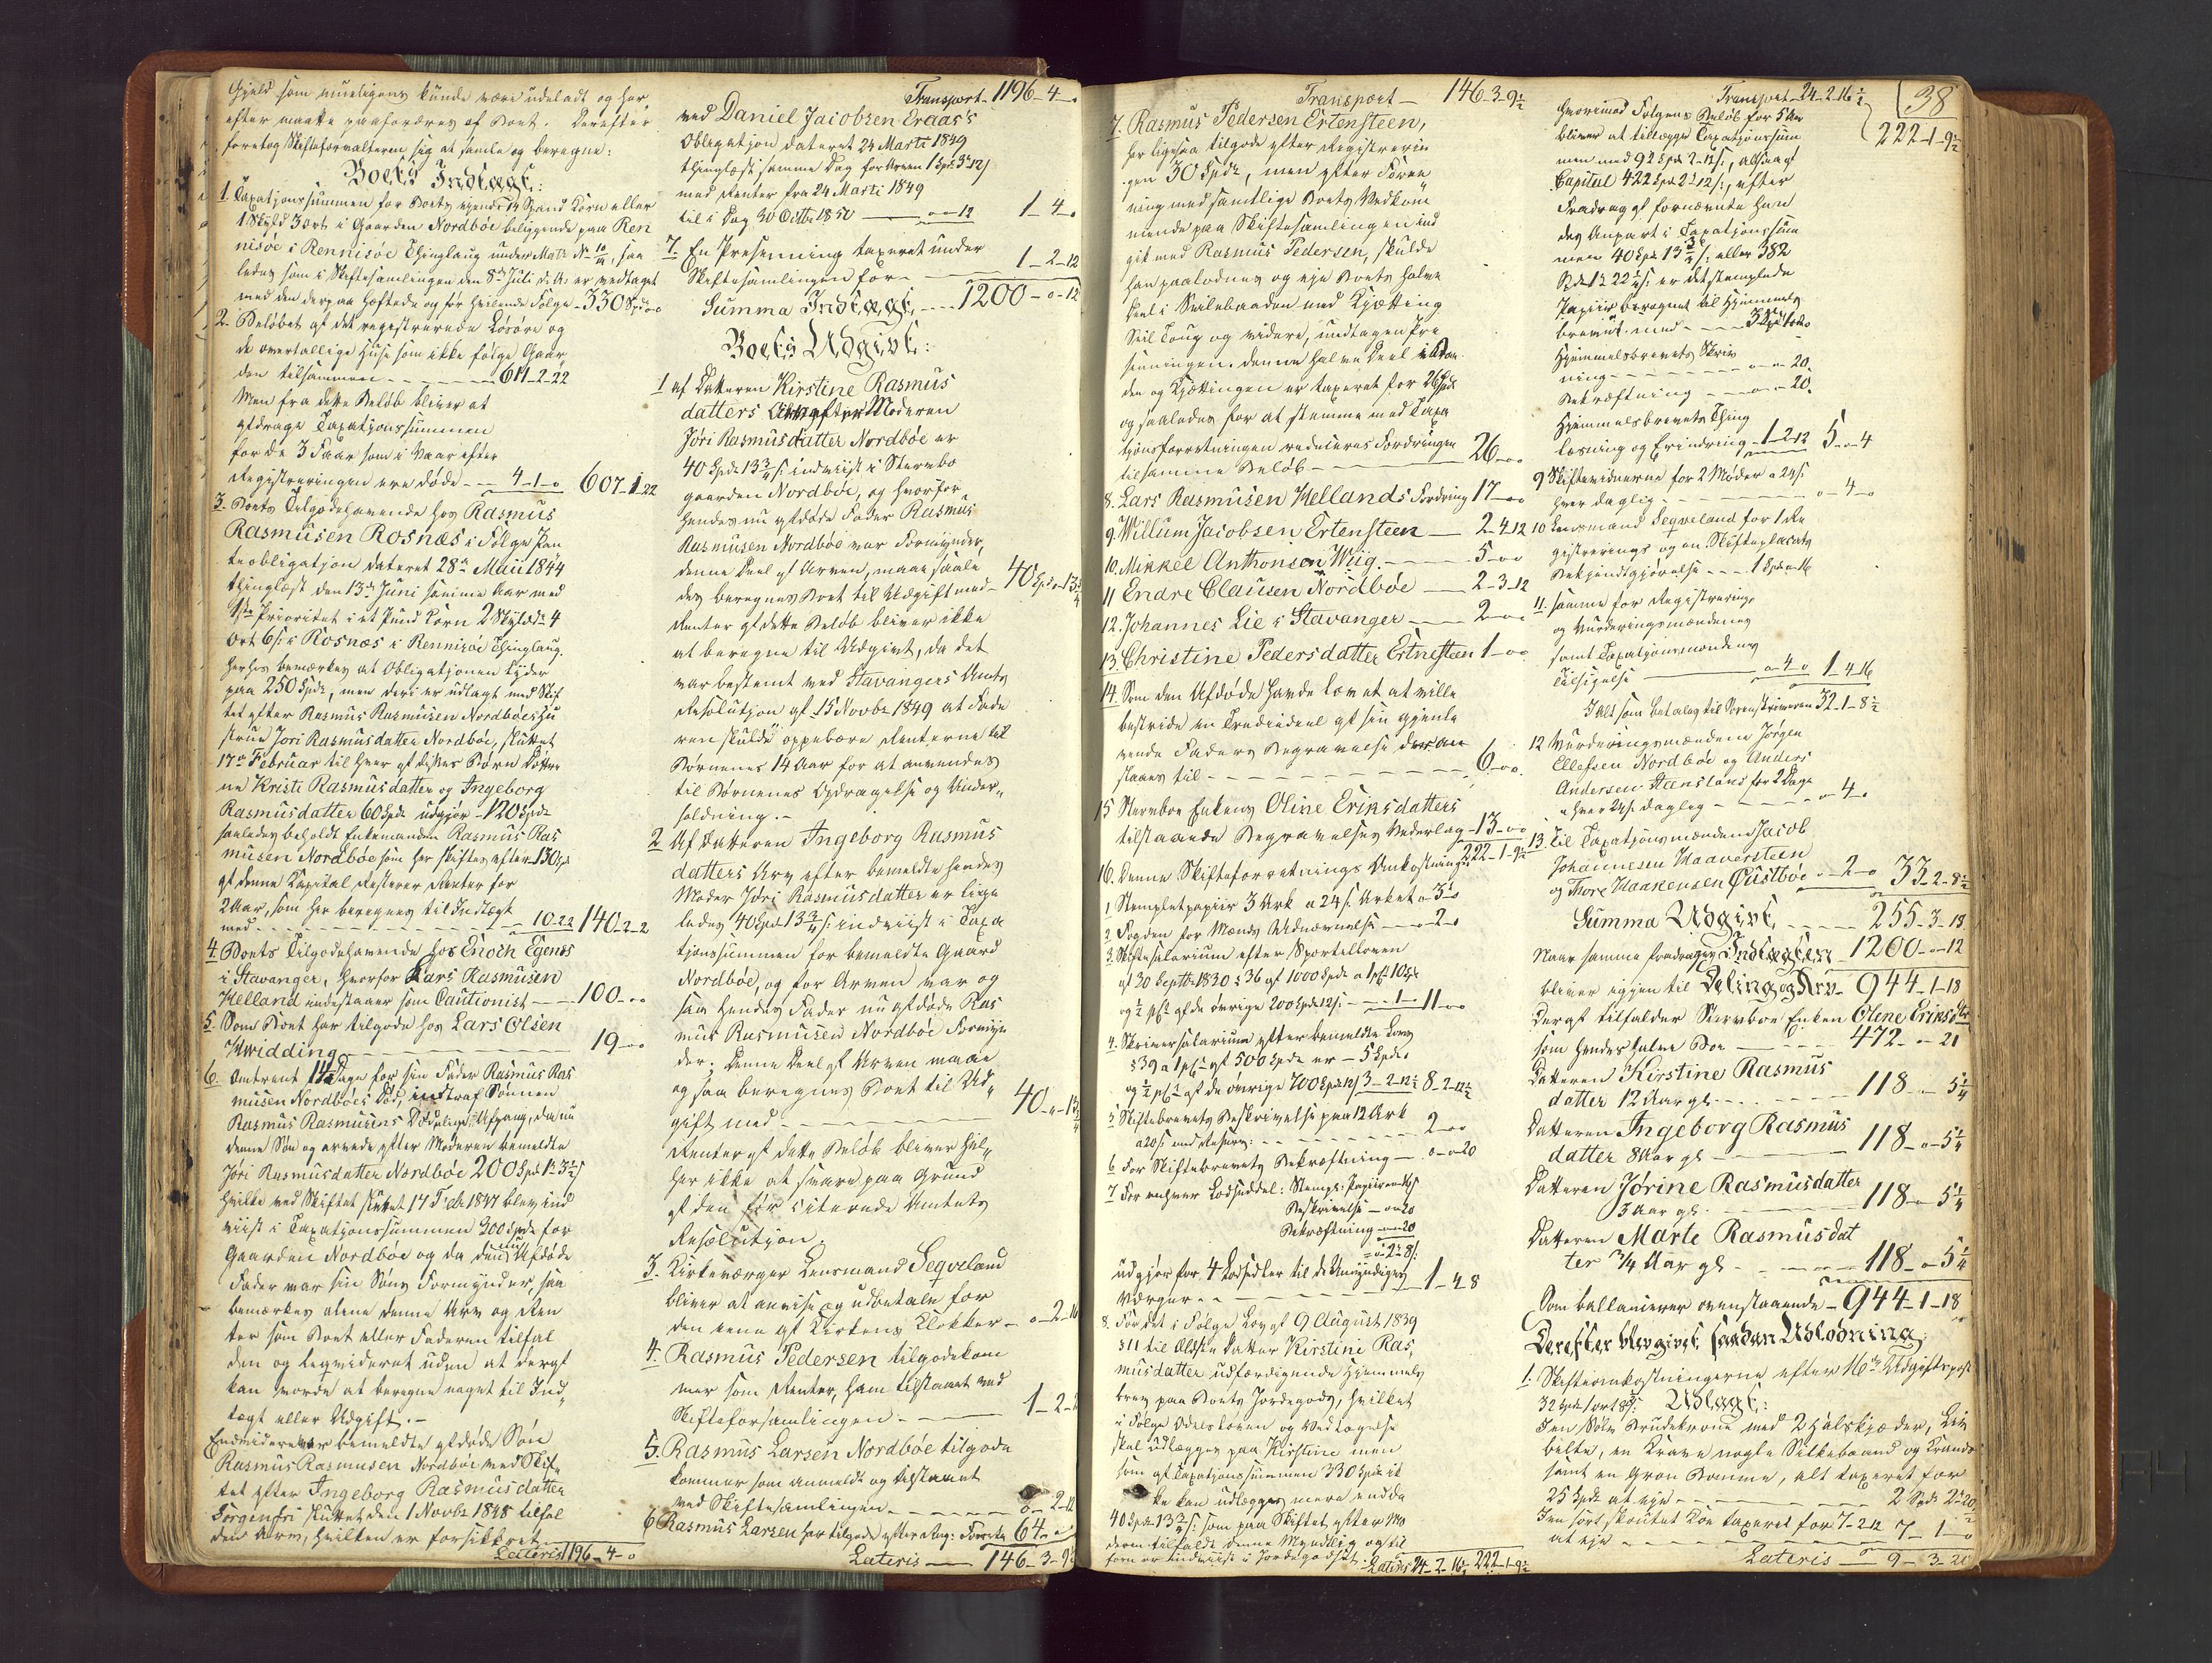 Gjeld som mueligens kunde være udeladt og her
efter maatte paafordres af Boet. Derefter
foretog Skifteforvalteren sig at samle og beregne:
Boets Indtægt:
1. Taxatjonssummen for Boets ejende Spand Korn eller
i Gaarden Nordböe beliggende paa Ren
nisöe i Rennisöe Thinglaug under Matr. No, saa
ledes som i Skiftesamlingen den 8de Juli d. A. er vedtaget
med den derpaa heftede og før hvilende Følge - 330 Spd - o
2. Beløbet af det registrerede Løsøre og
de overtallige Huse som ikke følge Gaar
den tilsammen - - - 611-2-22
Men fra dette Beløb bliver at
afdrage Taxatjonssummen
for de 3 Faar som i Vaar efter
Registreringen ere døde - - 4-1-o 607-1-22
3. Boets Tilgodehavende hos Rasmus
Rasmusen Rosnæs i Følge Pan
teobligatjon dateret 28de Maii 1844
thinglæst den 13de Juni samme Aar med
1ste Prioritet i et Pund Korn 2 Skyldd. 4
Ort 6 s. i Rosnæs i Rennisöe Thinglaug.
Herhos bemærkes at Obligatjonen lyder
paa 250 Spdr, men deri er udlagt ved Skif
tet efter Rasmus Rasmusen Nordböes Hu
strue Jøri Rasmusdatter Nordböe, sluttet
17de Februar til hver af disses Børn Døttre
ne Kristi Rasmusdatter og Ingeborg
Rasmusdatter 60 Spdr udgjør - 120 Spdr
saaledes beholdt Enkemanden Rasmus Ras
musen Nordböe som her skiftes efter 130 Spd
af denne Kapital resterer Renter for
2 Aar, som her beregnes til Indtægt
med - - - 10-2-2 140-2-2
4. Boets Tilgodehavende hos Enoch Egenes
i Stavanger, hvorfor Lars Rasmusen
Helland indestaaer som Cautionist - - 100-o-o
5. Som Boet har tilgode hos Lars Olsen
Hvidding - - - 19-o-o
6. Omtrent 14 Dage før sin Fader Rasmus Ras
musen Nordböes Død, indtraf Sønnen
Rasmus Rasmusens Dødelige Afgang, da nu
denne Søn og arvede efter Moderen bemeldte
Jøri Rasmusdatter Nordböe 200 Spd 1 s 3½ s
hvilke ved Skiftet sluttet 17 Febr 1847 blev ind
viist i Taxatjonssummen 300 Spdr for
Gaarden Nordböe og da den nu Afdøde
Fader var sin Søns Formynder, saa
bemærkes alene denne Arv og Ren
ter som Boet eller Faderen tilfal
den og liqvideret uden at deraf
kan vorde at beregne noget til Ind
tægt eller Udgift. -
Endvidere var bemeldte afdøde Søn
Rasmus Rasmusen Nordböe ved Skif
tet efter Ingeborg Rasmusdatter
Sørgenfri sluttet den 1 Novbr 1848 tilfal
den Arv, hvilken er forsikkret
Lateris 1196-4-o
Transport - 1196-4-o
ved Daniel Jacobsen Eraas's
Obligatjon dateret 24 Marti 1849
thinglæst samme Dag for Arven 1 Spd 3 s 12 s
med Renter fra 24 Marti 1849
til i Dag 30 Octbr 1850 - - o-o-12 1-4-o
7. En Presenning taxeret under
Skiftesamlingen for - - - 1-2-12
Summa Indtægt - - - 1200-o-12
Boets Udgivt:
1 af Datteren Kirstine Rasmus
datters Arv efter Moderen
Jøri Rasmusdatter Nordböe er
40 Spdr 13¾ s indviist i Stervbo
gaarden Nordböe, og hvorfor
hendes nu afdøde Fader Rasmus
Rasmusen Nordböe var Formynder,
denne Deel af Arven, maae saale
des beregnes Boet til Udgift med - 40 Spd-o-13¾
Renter af dette Beløb bliver ikke
at beregne til Udgivt, da det
var bestemt ved Stavangers Amts
Resolutjon af 15 Novbr 1849 at Fade
ren skulde oppebære Renterne til
Børnenes 14 Aar for at anvendes
til Børnenes Opdragelse og Under„
holdning. -
2 Af Datteren Ingeborg Rasmus
datters Arv efter bemeldte hendes
Moder Jøri Rasmusdatter er lige
ledes 40 Spdr 13¾ s indviist i Taxa
tjonssummen for bemeldte Gaard
Nordböe, og for Arven var og
saa hendes Fader nu afdøde Ras
mus Rasmusen Nordböe Formyn
der. Denne Deel af Arven maae
og saa beregnes Boet til Ud„
gift med - - - 40-o-13¾
Renter af dette Beløb bliver hel„
her ikke at svare paa Grund
af den før citerede Amtets
Resolutjon.
3. Kirkeværger Lensmand Seqveland
bliver at anvise og udbetale for
den eene af Kirkens Klokker - o-2-16
4. Rasmus Pedersen tilgodekom
mer som Renter, ham tilstaaet ved
Skifteforsamlingen - - 1-2-2
5. Rasmus Larsen Nordböe tilgode
kommer som anmeldt og tilstaaet
ved Skiftesamlingen - - - o-2-12
6 Rasmus Larsen har tilgode efter Reg: Forretn 64-o-o
Lateris - - 146-3-9½
Transport - 146-3-9½
7. Rasmus Pedersen Ertensteen,
her ligesaa tilgode efter Registrerin
gen 30 Spdr, men efter Foree
ning med samtlige Boets Vedkom
mende paa Skiftesamlingen ind
gik med Rasmus Pedersen, skulde
han paalodnes og eje Boets halve
Deel i Seilebaaden med Kjætting
Seil Toug og videre, undtagen Pre
senningen. Denne halve Deel i Baa
den og Kjættingen er taxeret for 26 Spdr
og saaledes for at stemme med Taxa
tjonsforretningen reduceres Fordringen
til samme Beløb - - - 26-o-o
8. Lars Rasmusen Hellands Fordring 17-o-o
9. Willum Jacobsen Ertensteen - 2-4-12
10. Mikkel Anthonsen Wiig. - - 5-o-o
11 Endre Clausen Nordböe - - 2-3-12
12. Johannes Lie i Stavanger - - 2-o-o
13. Christine Pedersdatter Ertnesteen 1-o-o
14. Som den Afdøde havde lovet at ville
bestride en Trediedeel af sin gjenle
vende Faders Begravelse deran
slaaes til - - - 6-o-o
15 Stervboe Enkens Oline Eriksdatters
tilstaaede Begravelses Vederlag - 13-o-o
222-1-9½
16. Denne Skifteforretnings Omkostninger
1 Stemplet papiir 3 Ark a 24 s. Arket o-3-o
2 Fogden for Mænds Udnævnelse - o-2-o
3. Skiftesalarium efter Sportelloven
af 30 Septbr 1830 § 36 af 1000 Spdr a 1 pCt 10 Spd
og ½ pCt af de øvrige 200 Spdr 12 s - - 1- 11-o-o
4. Skriversalarium efter bemeldte Lovs
§ 39 a 1 pCt af 500 Spdr er - 5 Spdr
og ½ pCt af de øvrige 700 Spdr 12 s 3-2-12½ 8-2-12½
5 Skiftebrevets Beskrivelse paa 12 Ark
a 20 s - - - 2-o-o
6 For Skiftebrevets Bekræftning - o-o-20
7 For enhver Lodseddel: Stempl: Papiir
Beskrivelse - o-o-20
Bekræftning - o-o-20
o-2-8 s
udgjør for 4 Lodsedler til de Umyndiges
Værger - - - 1-4-8
8. For det i Følge Lov af 9 August 1839
§ 11 til Ældste Datter Kirstine Ras„
musdatter udfærdigende Hjemmels
brev paa Boets Jordegods, hvilket
i Følge Odelsloven og Vedtagelse
skal udlægges paa Kirstine men
som af Taxatjonssummen 330 Spdr ik
ke kan udlægges mere end da
40 Spdr 13¾ s: som paa Skiftet efter Mo
deren tilfaldt denne Myndling og til
forn er indviist i Jordegodset.
Lateris 24-2-16½ 222-1-9½
Transport - 24-2-16½
38
222-1-9½
hvorimod Følgens Beløb for 5 Aar
bliver at tillægge Taxatjonssum
men med 92 Spd 2-12 s, altsaa af
Capital 422 Spdr 2 s 12 s, efter
Fradrag af fornævnte hen
des Anpart i Taxatjonssum
men 40 Spd 13¾ s: eller 382
Spdr 1 s 22¼ s: er det stemplede
Papiir beregnet til Hjemmels
brevet med - - 3 Spd 1 s o
Hjemmelsbrevets Skriv
ning - - - o-o-20.
Bekræftning - - o-o-20.
Hjemmelsbrevets Thing
læsning og Erindring - 1-2-12 5-o-4
9 Skiftevidnerne for 2 Møder a 24 s.
hver daglig - - - o-4-o
10 Lensmand Seqveland for 1 Re
gistrerings og en Skifteplacats
Bekjendtgjørelse - - 1 Spd o-16
11. samme for Registrerings
og Vurderingsmændenes
samt Taxatjonsmændenes
Tilsigelse - - o-4-o 1-4-16
I Alt som betales til Sorenskriveren 32-1-8½
12 Vurderingsmændene Jørgen
Ellefsen Nordböe og Anders
Andersen Steensland for 2 Dage
a hver 24 s. dagleg - - - o-4-o
13. Til Taxatjonsmændene Jacob
Johannesen Haaversteen
og Thore Haakensen Qustböe - o-2-o 33-2-8½
Summa Udgivt - - - 255-3-18
Naar samme fradrages Indtægten 1200-o-12
bliver igjen til Deling og Arv - 944-1-18
Deraf tilfalder Stervboe Enken Olene Eriksdtr
som hendes halve Boe - - - 472-o-21
Datteren Kirstine Rasmus
datter 12 Aar gl. - - - 118-o-5¼
Datteren Ingeborg Rasmus
datter 8 Aar gl - - - 118-o-5¼
Datteren Jørine Rasmusdatter
3 Aar gl. - - - 118-o-5¼
Datteren Marte Rasmusdat
ter ¾ Aar gl - - - 118-o-5¼
Som ballancerer ovenstaaende - 944-1-18
Derefter blev givet saadan Udlodning:
1. Skifteomkostningerne efter 16de Udgiftspost
32 Spdr 1 ort 8½ s: Udlagt:
Den Sølv Brudekrone med 2 Halskjæder, Liv
belte, en Krave nogle Silkebaand og Krands
samt en Grøn Komme, alt taxeret for
25 Spdr at eje - - - 2 Spdr 2-20
Den sort skoutet Koe taxeret for 7-2-12 7-1-o
at eje - - -
Lateris - 9-3-20